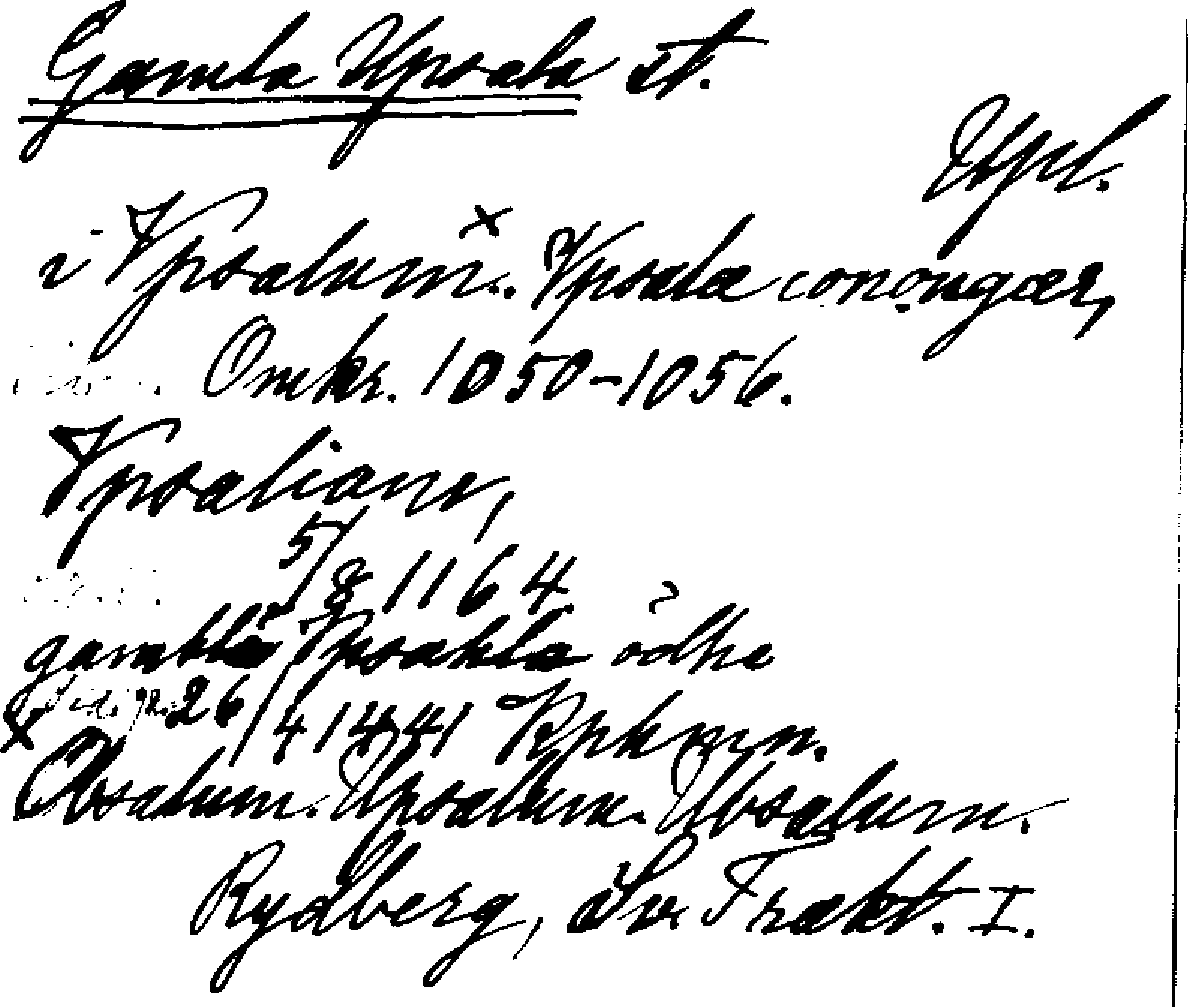 Gamla Upsala st.
Upl.
i Vpsalum. x Vpsala conongær,
Omkr. 1050-1056.
Vpsaliam,
5/8 1164
gambla Vpsahla ödhe
26/4 1441 Rpkmn.
x Obsalum. Upsallum. Ubsalum.
Rydberg, Sv. Trakt. I.